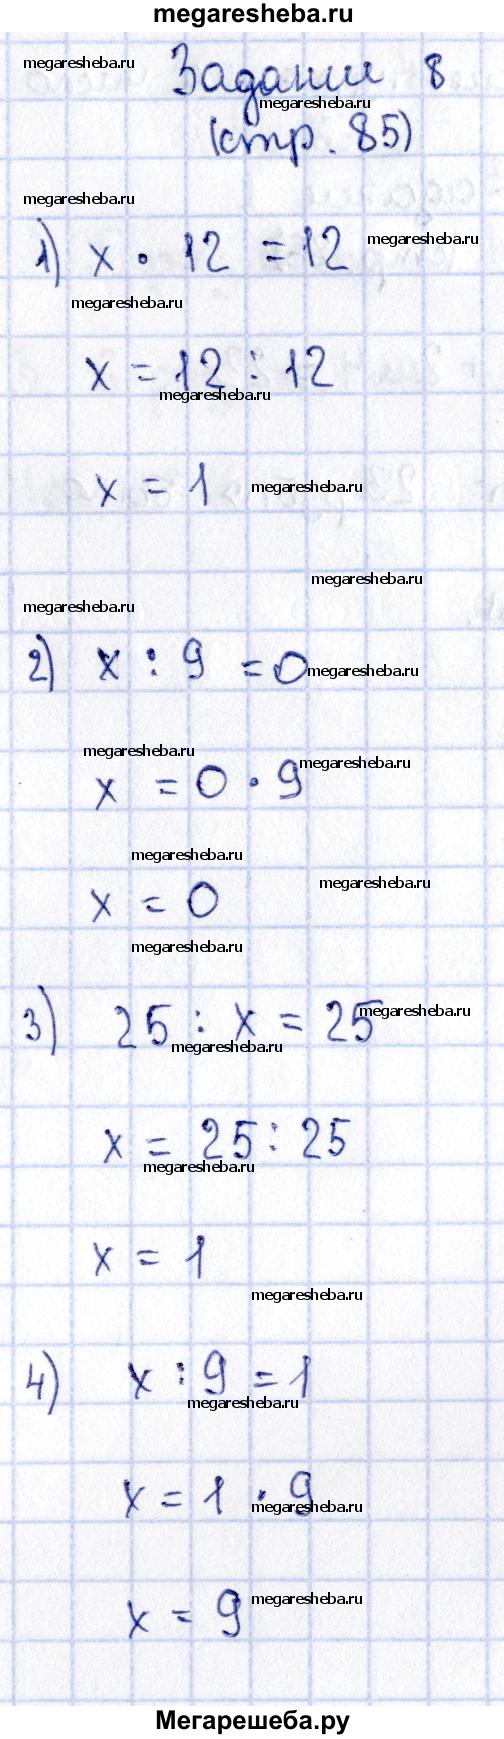 megaresheba.ru
megaresheba.ru
Задание 8
megaresheba.ru
(стр. 85)
megaresheba.ru
1) x · 12 = 12
megaresheba.ru
megaresheba.ru
x = 12 : 12
megaresheba.ru
x = 1
megaresheba.ru
megaresheba.ru
megaresheba.ru
2) x : 9 = 0
megaresheba.ru
megaresheba.ru
megaresheba.ru
x = 0 · 9
megaresheba.ru
megaresheba.ru
x = 0
megaresheba.ru
3) 25 : x = 25
megaresheba.ru
megaresheba.ru
x = 25 : 25
megaresheba.ru
x = 1
megaresheba.ru
4) x : 9 = 1
megaresheba.ru
x = 1 · 9
megaresheba.ru
x = 9
megaresheba.ru
Мегарешеба.ру